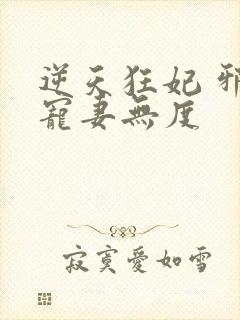 逆天狂妃 邪
寵妻無度
寂寞愛如雪